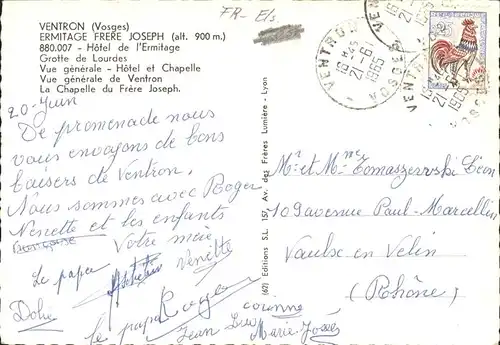 VENTRON (Vosges)
ERMITAGE FRERE JOSEPH (alt. 900 m.)
880.007 - Hôtel de l'Ermitage
Grotte de Lourdes
Vue générale - Hôtel et Chapelle
Vue générale de Ventron
La Chapelle du Frère Joseph.
FR-Els
VENTRON
18 H45
21-6
1965
VOSGES
20 Juin
De promenade nous
vous envoyons de bons
baisers de Ventron.
Nous sommes avec Roger
Nenette et les enfants
Votre mère
Le papa
Nenette
Le papa
Roger
Jean Luc
corinne
Marie-José
(62) Editions S.L. 157, Av. des Frères Lumière - Lyon
Mr et Mme Tomaszervski Léon
109 avenue Paul-Marcellin
Vaulx en Velin
(Rhône)